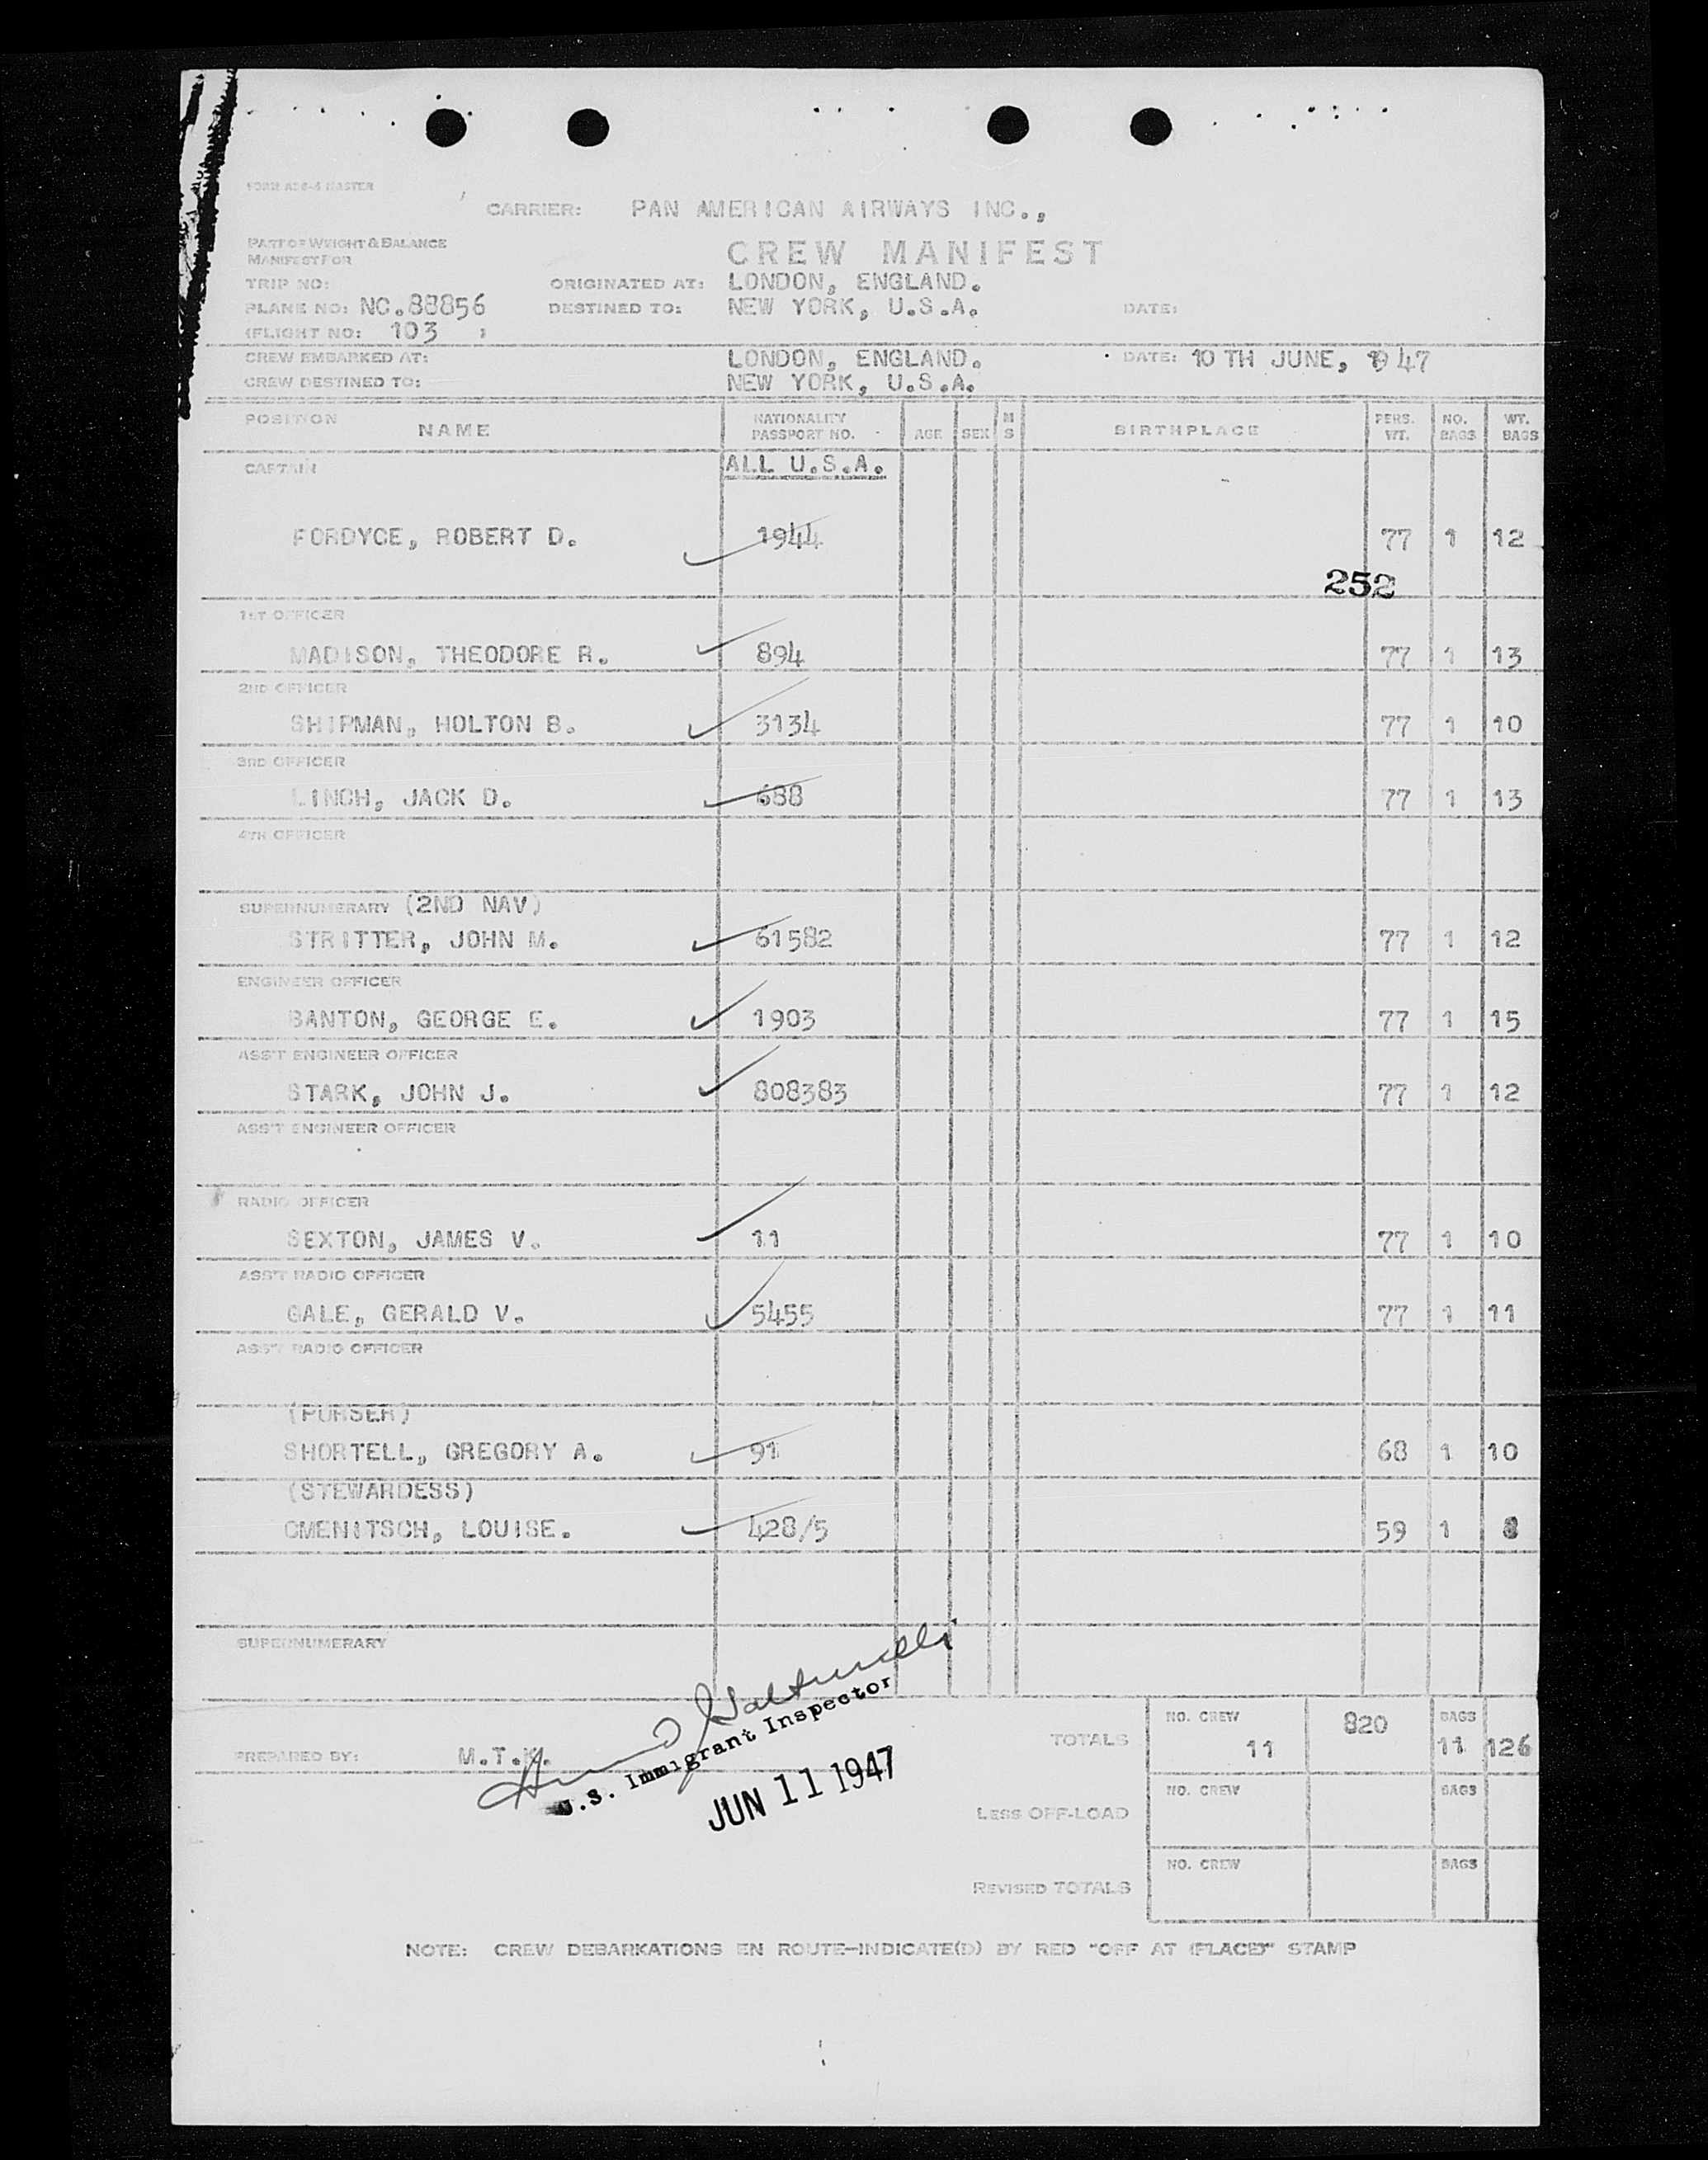 FORM AD8-4 MASTER
CARRIER: PAN AMERICAN AIRWAYS INC.,
PART OF WEIGHT & BALANCE
MANIFEST FOR
CREW MANIFEST
TRIP NO: ORIGINATED AT: LONDON, ENGLAND.
PLANE NO: NC.88856 DESTINED TO: NEW YORK, U.S.A. DATE:
(FLIGHT NO: 103 )
CREW EMBARKED AT: LONDON, ENGLAND. DATE: 10 TH JUNE, 1947
CREW DESTINED TO: NEW YORK, U.S.A.
POSITION NAME NATIONALITY PASSPORT NO. AGE SEX M S BIRTHPLACE PERS. WT. NO. BAGS WT. BAGS
CAPTAIN ALL U.S.A.
FORDYCE, ROBERT D. 1944 77 1 12
252
1ST OFFICER
MADISON, THEODORE R. 894 77 1 13
2ND OFFICER
SHIPMAN, HOLTON B. 3134 77 1 10
3RD OFFICER
LINCH, JACK D. 688 77 1 13
4TH OFFICER
SUPERNUMERARY (2ND NAV)
STRITTER, JOHN M. 61582 77 1 12
ENGINEER OFFICER
BANTON, GEORGE E. 1903 77 1 15
ASS'T ENGINEER OFFICER
STARK, JOHN J. 808383 77 1 12
ASS'T ENGINEER OFFICER
RADIO OFFICER
SEXTON, JAMES V. 11 77 1 10
ASS'T RADIO OFFICER
GALE, GERALD V. 5455 77 1 11
ASS'T RADIO OFFICER
(PURSER)
SHORTELL, GREGORY A. 91 68 1 10
(STEWARDESS)
OMENITSCH, LOUISE. 428/5 59 1 8
SUPERNUMERARY
TOTALS NO. CREW 11 820 BAGS 11 126
PREPARED BY: M.T.K.
U.S. Immigrant Inspector
JUN 11 1947
LESS OFF-LOAD NO. CREW BAGS
REVISED TOTALS NO. CREW BAGS
NOTE: CREW DEBARKATIONS EN ROUTE-INDICATE(D) BY RED "OFF AT (PLACE)" STAMP